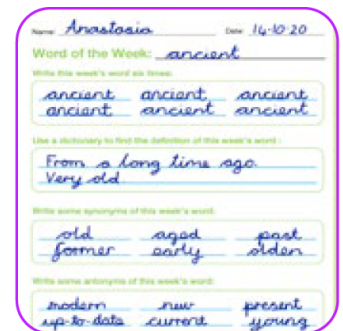 Name: Anastasia Date: 14-10-20
Word of the Week: ancient
Write this week's word six times:
ancient ancient ancient
ancient ancient ancient
Use a dictionary to find the definition of this week's word:
From a long time ago.
Very old
Write some synonyms of this week's word:
old aged past
former early olden
Write some antonyms of this week's word:
modern new present
up-to-date current young